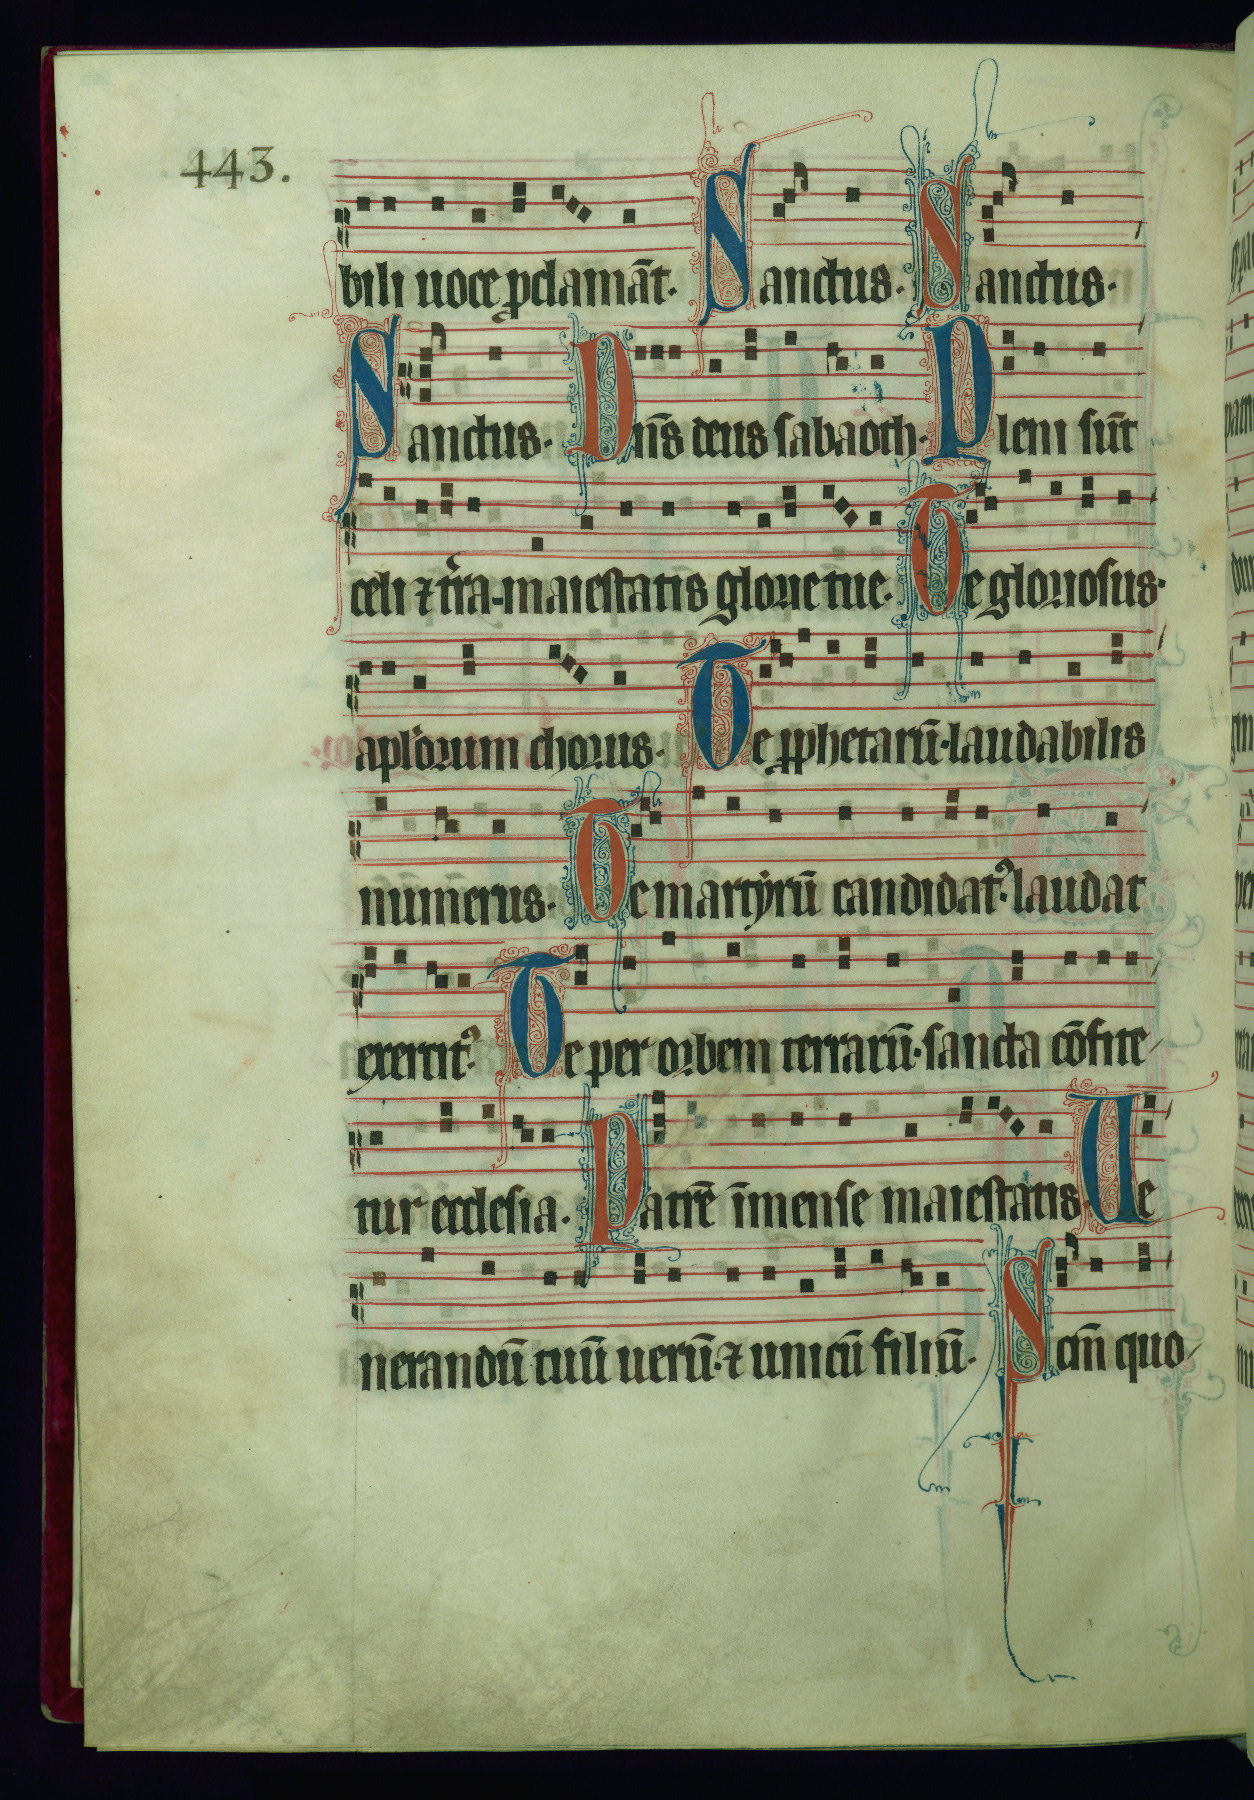 443.
bili uoce ꝓclamāt. Sanctus. Sanctus.
Sanctus. Dn̄s deus sabaoth. Pleni sūt
celi ⁊ t̄ra. maiestatis glorie tue. Te gloriosus.
apl'orum chorus. Te ꝓphetarū. laudabilis
numerus. Te martyrū candidatꝰ. laudat
exercitꝰ. Te per orbem terrarū. sancta cōfite
tur ecclesia. Patrē īmense maiestatis. Ue
nerandū tuū uerū. ⁊ unicū filiū. Scm̄ quo